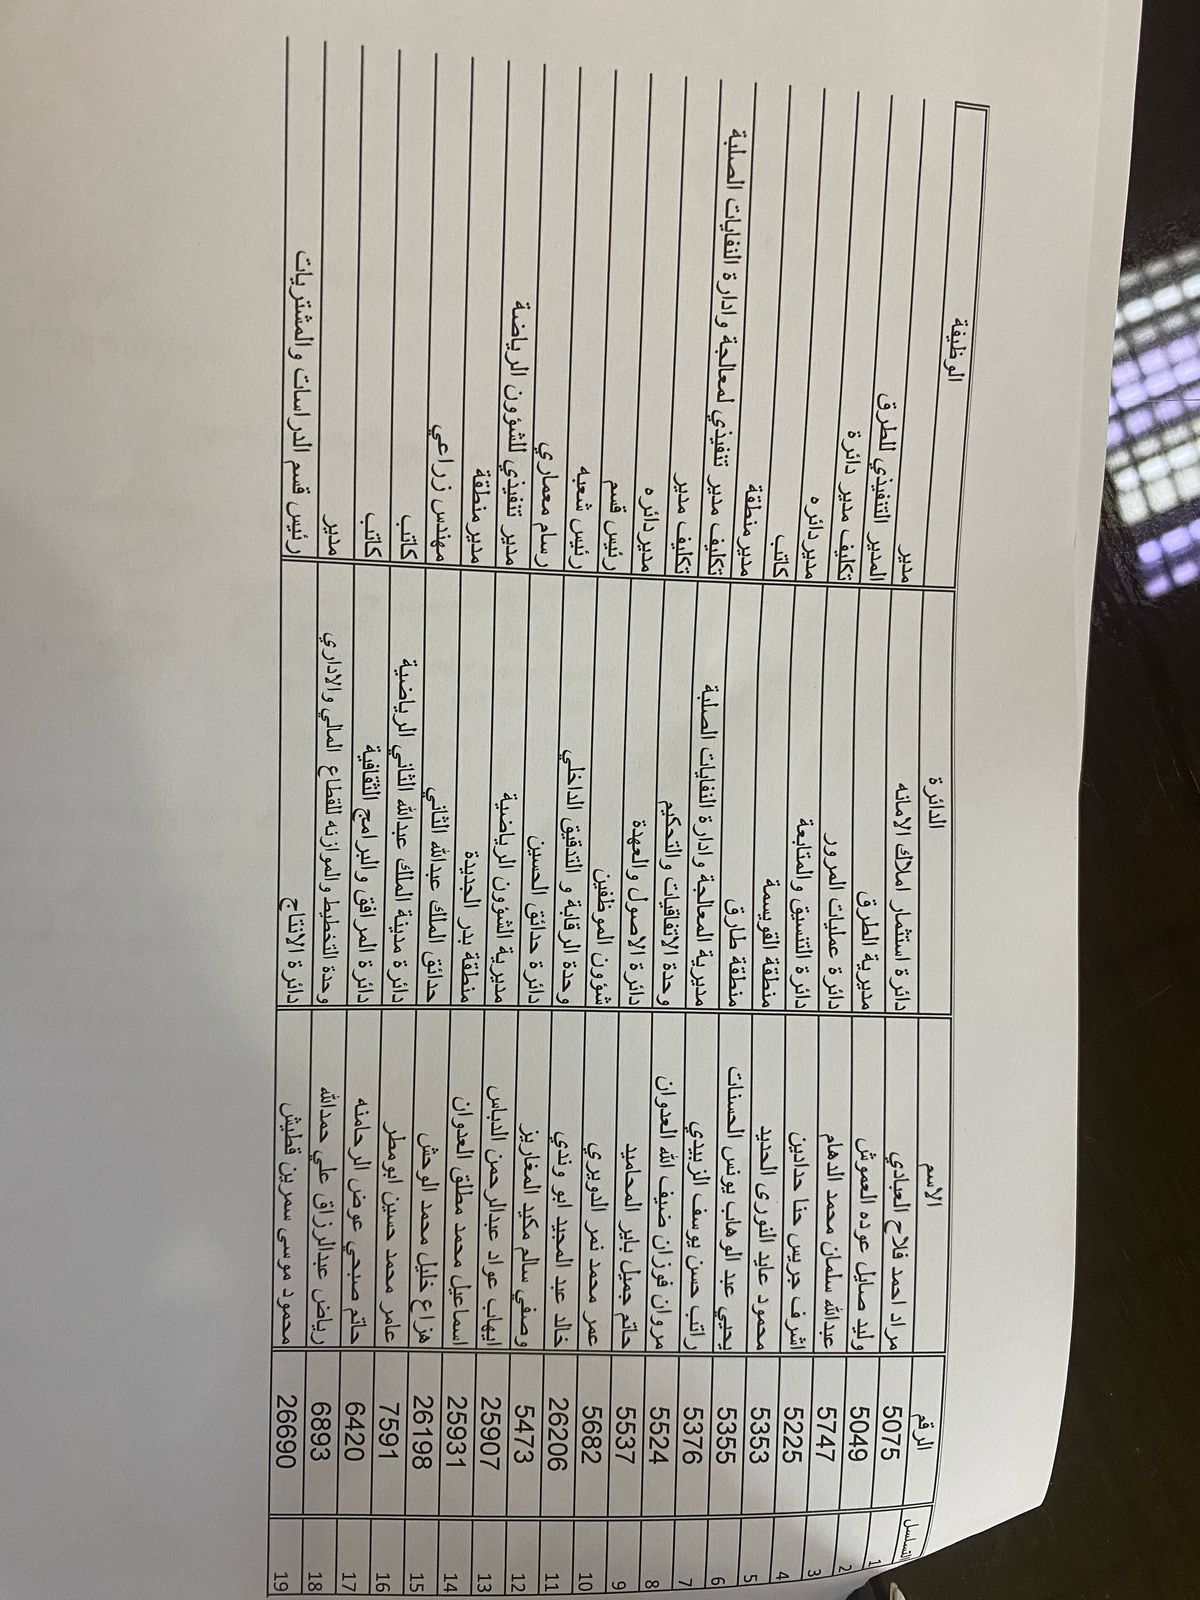 التسلسل الرقم الاسم الدائرة الوظيفة
1 5075 مراد احمد فلاح العبادي دائرة استثمار املاك الامانه مدير
2 5049 وليد صايل عوده العموش مديرية الطرق المدير التنفيذي للطرق
3 5747 عبدالله سلمان محمد الدهام دائرة عمليات المرور تكليف مدير دائرة
4 5225 اشرف جريس حنا حدادين دائرة التنسيق والمتابعة مدير دائره
5 5353 محمود عايد النورى الحديد منطقة القويسمة كاتب
6 5355 يحيي عبد الوهاب يونس الحسنات منطقة طارق مدير منطقة
7 5376 راتب حسن يوسف الزبيدي مديرية المعالجة وادارة النفايات الصلبة تكليف مدير تنفيذي لمعالجة وادارة النفايات الصلبة
8 5524 مروان فوزان ضيف الله العدوان وحدة الاتفاقيات والتحكيم تكليف مدير
9 5537 حاتم جميل باير المحاميد دائرة الاصول والعهدة مدير دائره
10 5682 عمر محمد نمر الدويري شؤون الموظفين رئيس قسم
11 26206 خالد عبد المجيد ابو وندي وحدة الرقابة و التدقيق الداخلي رئيس شعبه
12 5473 وصفي سالم مكيد المغاريز دائرة حدائق الحسين رسام معماري
13 25907 ايهاب عواد عبدالرحمن الدباس مديرية الشؤون الرياضية مدير تنفيذي للشؤون الرياضة
14 25931 اسماعيل محمد مطلق العدوان منطقة بدر الجديدة مدير منطقة
15 26198 هزاع خليل محمد الوحش حدائق الملك عبدالله الثاني مهندس زراعي
16 7591 عامر محمد حسين ابومطر دائرة مدينة الملك عبدالله الثاني الرياضية كاتب
17 6420 حاتم صبحي عوض الرحامنه دائرة المرافق والبرامج الثقافية كاتب
18 6893 رياض عبدالرزاق علي حمدالله وحدة التخطيط والموازنه للقطاع المالي والاداري مدير
19 26690 محمود موسى سمرين قطيش دائرة الانتاج رئيس قسم الدراسات والمشتريات